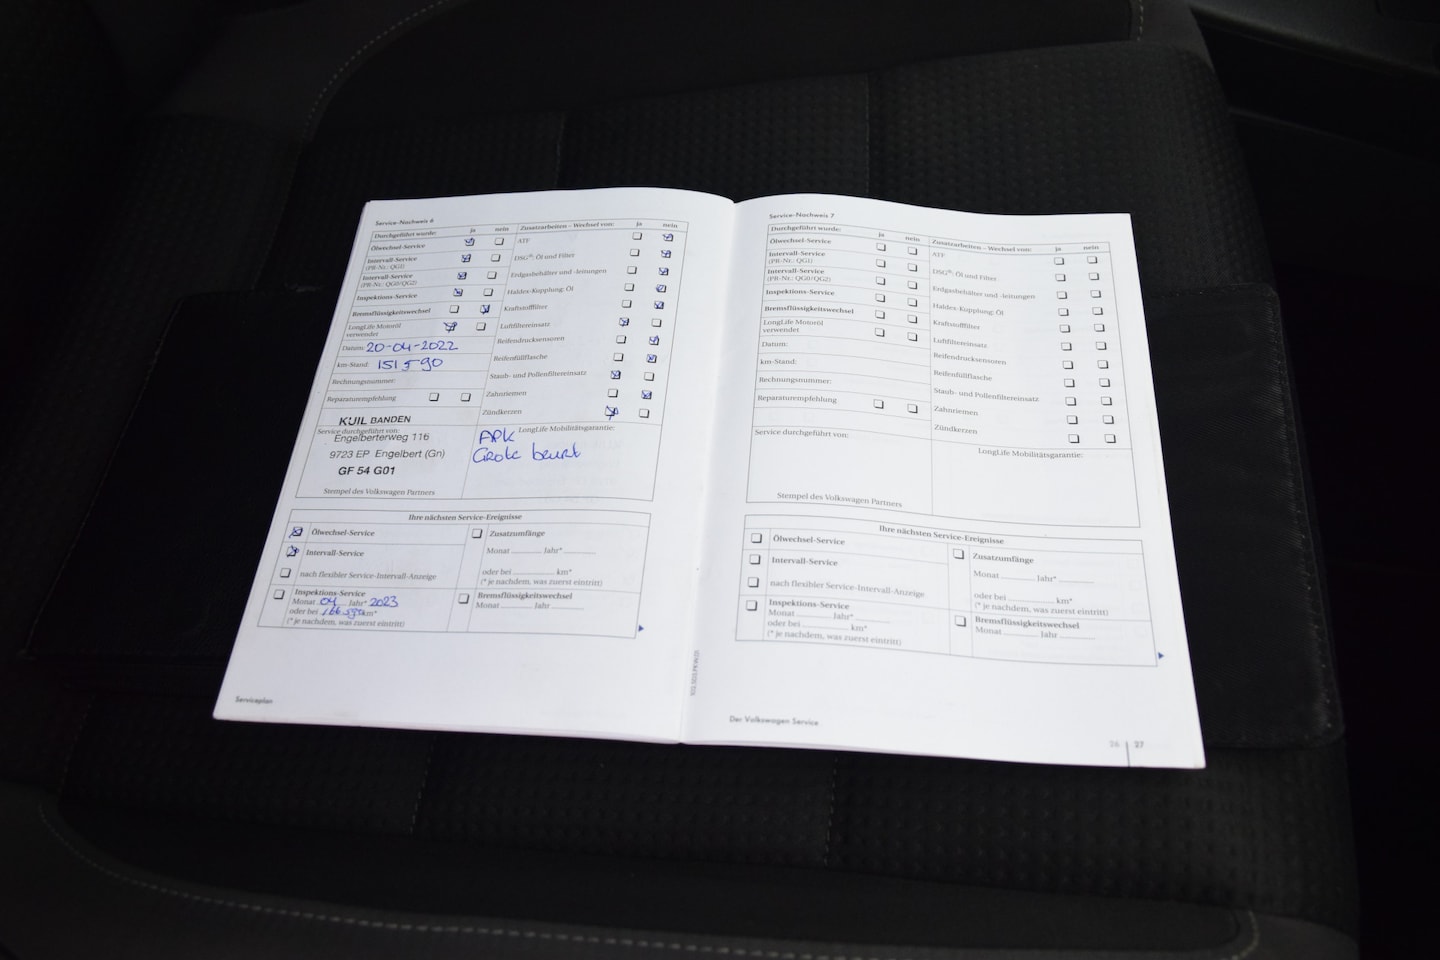 Service-Nachweis 6
Durchgeführt wurde: ja nein
Ölwechsel-Service
Intervall-Service
(PR-Nr.: QG1)
Intervall-Service
(PR-Nr.: QG0/QG2)
Inspektions-Service
Bremsflüssigkeitswechsel
LongLife Motoröl
verwendet
Datum: 20-04-2022
km-Stand: 151590
Rechnungsnummer:
Reparaturempfehlung
KUIL BANDEN
Service durchgeführt von:
Engelberterweg 116
9723 EP Engelbert (Gn)
GF 54 G01
Stempel des Volkswagen Partners
Zusatzarbeiten – Wechsel von: ja nein
ATF
DSG®: Öl und Filter
Erdgasbehälter und -leitungen
Haldex-Kupplung: Öl
Kraftstofffilter
Luftfiltereinsatz
Reifendrucksensoren
Reifenfüllflasche
Staub- und Pollenfiltereinsatz
Zahnriemen
Zündkerzen
LongLife Mobilitätsgarantie:
APK
Grote beurt
Ihre nächsten Service-Ereignisse
Ölwechsel-Service
Intervall-Service
nach flexibler Service-Intervall-Anzeige
Inspektions-Service
Monat 04 Jahr* 2023
oder bei 166.590 km*
(* je nachdem, was zuerst eintritt)
Zusatzumfänge
Monat ............ Jahr* ............
oder bei ................ km*
(* je nachdem, was zuerst eintritt)
Bremsflüssigkeitswechsel
Monat ............ Jahr ............
Serviceplan
Service-Nachweis 7
Durchgeführt wurde: ja nein
Ölwechsel-Service
Intervall-Service
(PR-Nr.: QG1)
Intervall-Service
(PR-Nr.: QG0/QG2)
Inspektions-Service
Bremsflüssigkeitswechsel
LongLife Motoröl
verwendet
Datum:
km-Stand:
Rechnungsnummer:
Reparaturempfehlung
Service durchgeführt von:
Stempel des Volkswagen Partners
Zusatzarbeiten – Wechsel von: ja nein
ATF
DSG®: Öl und Filter
Erdgasbehälter und -leitungen
Haldex-Kupplung: Öl
Kraftstofffilter
Luftfiltereinsatz
Reifendrucksensoren
Reifenfüllflasche
Staub- und Pollenfiltereinsatz
Zahnriemen
Zündkerzen
LongLife Mobilitätsgarantie:
Ihre nächsten Service-Ereignisse
Ölwechsel-Service
Intervall-Service
nach flexibler Service-Intervall-Anzeige
Inspektions-Service
Monat ............ Jahr* ............
oder bei ................ km*
(* je nachdem, was zuerst eintritt)
Zusatzumfänge
Monat ............ Jahr* ............
oder bei ................ km*
(* je nachdem, was zuerst eintritt)
Bremsflüssigkeitswechsel
Monat ............ Jahr ............
Der Volkswagen Service
26 | 27